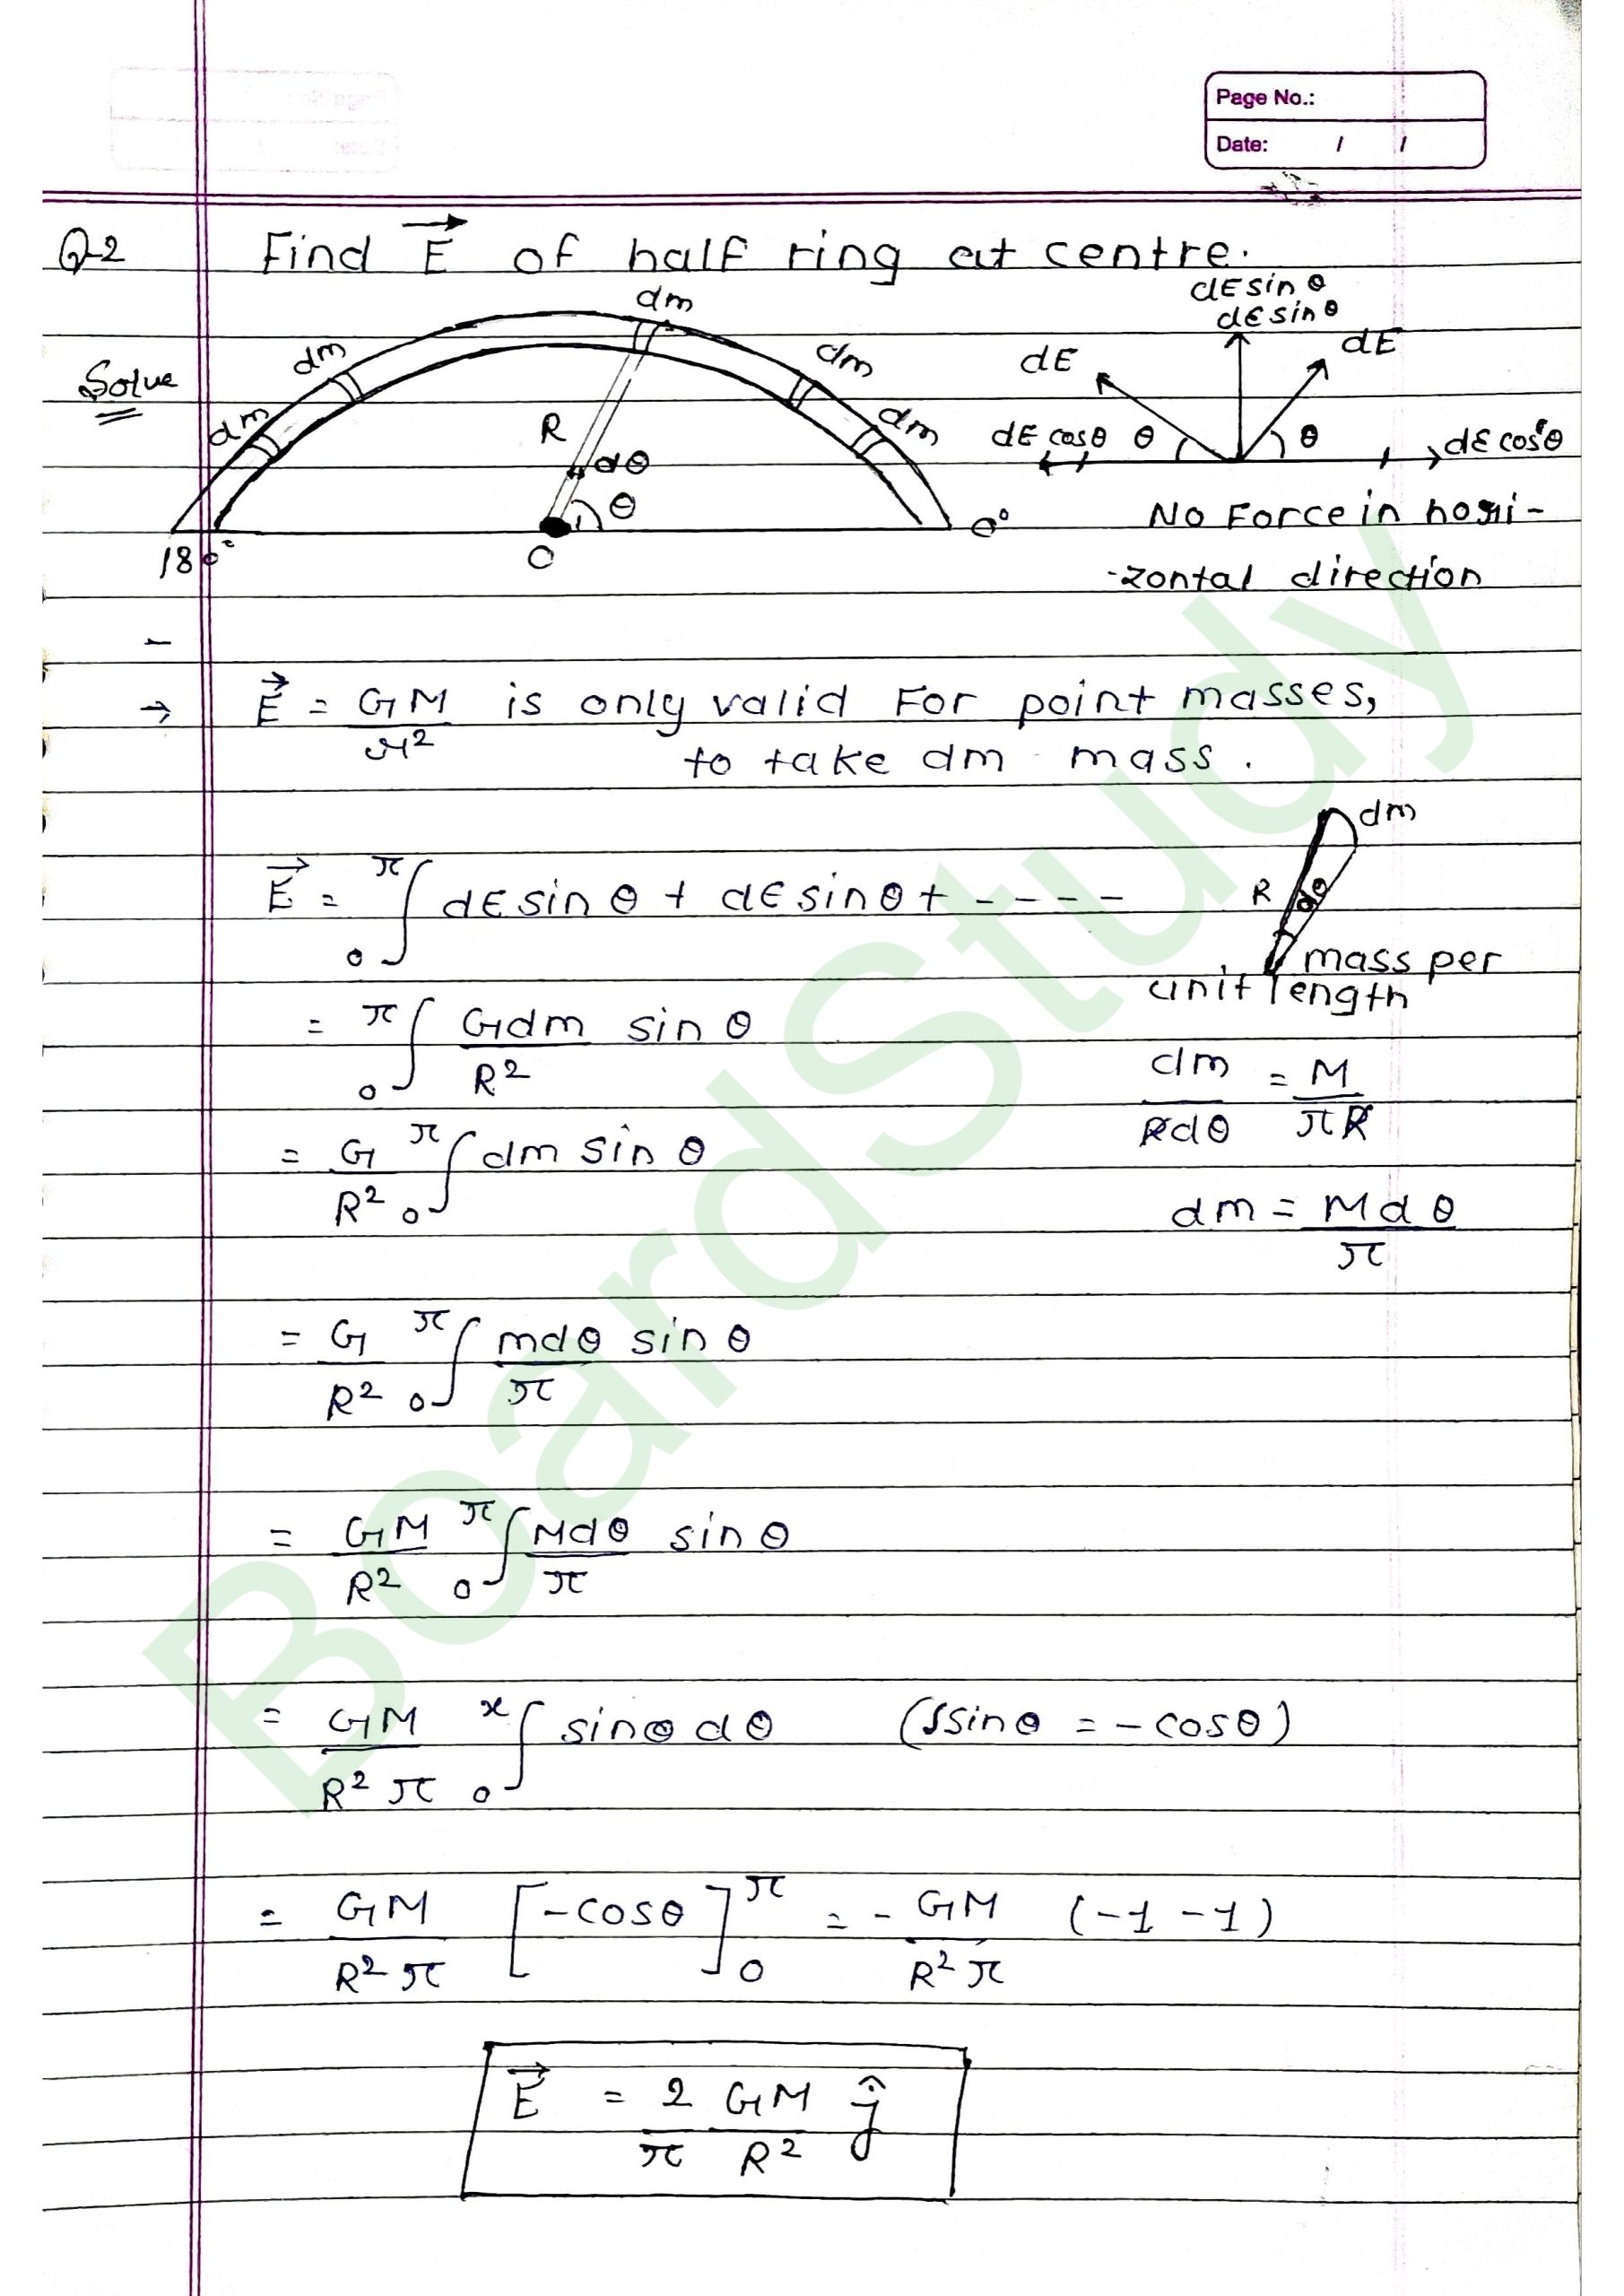 Page No.:
Date: / /
Q-2 Find E⃗ of half ring at centre.
dE sin θ
dE sin θ
dm
dm
dm
dm
dm
dE
dE
Solve
R
dθ
θ
dE cosθ θ
θ
dE cosθ
180°
O
0°
No Force in hori-
-zontal direction
→ E⃗ = GM/r² is only valid For point masses,
to take dm mass.
dm
R
dθ
mass per
unit length
E⃗ = ₀∫^π dE sin θ + dE sin θ + - - - -
= ₀∫^π Gdm/R² sin θ
dm/Rdθ = M/πR
= G/R² ₀∫^π dm sin θ
dm = Mdθ/π
= G/R² ₀∫^π mdθ/π sin θ
= GM/R² ₀∫^π Mdθ/π sin θ
= GM/R²π ₀∫^x sinθ dθ (∫sinθ = -cosθ)
= GM/R²π [-cosθ]₀^π = - GM/R²π (-1 -1)
E⃗ = 2/π GM/R² ĵ
BoardStudy